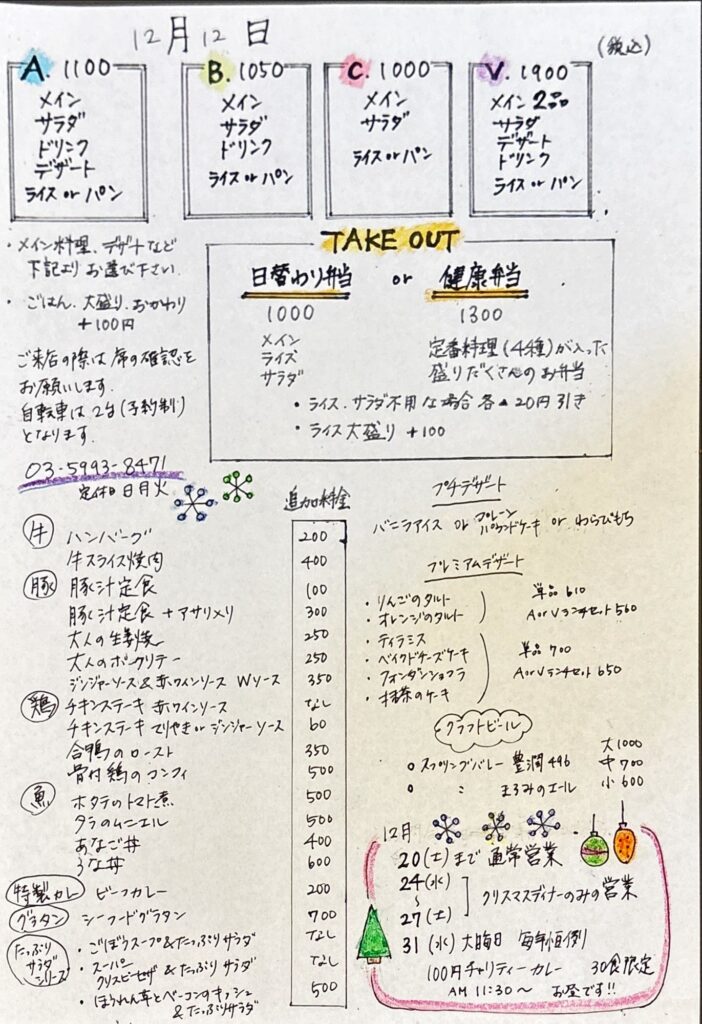 12月12日
(税込)
A. 1100
メイン
サラダ
ドリンク
デザート
ライス or パン
B. 1050
メイン
サラダ
ドリンク
ライス or パン
C. 1000
メイン
サラダ
ライス or パン
V. 1900
メイン 2品
サラダ
デザート
ドリンク
ライス or パン
・メイン料理、デザートなど
下記より お選び下さい.
・ごはん. 大盛り. おかわり
+100円
ご来店の際は 席の確認を
お願いします.
自転車は2台(予約制)
となります.
03-5993-8471
定休日 日月火
TAKE OUT
日替わり弁当 or 健康弁当
1000
メイン
ライス
サラダ
1300
定番料理(4種)が入った
盛りだくさんのお弁当
・ライス.サラダ不用な場合 各▲20円引き
・ライス大盛り +100
追加料金
牛
ハンバーグ 200
牛スライス焼肉 400
豚
豚汁定食 100
豚汁定食 + アサリメリ 300
大人の生姜焼 250
大人のポークソテー 250
ジンジャーソース&赤ワインソース Wソース 350
鶏
チキンステーキ 赤ワインソース なし
チキンステーキ てりやき or ジンジャーソース 60
合鴨のロースト 350
骨付鶏のコンフィ 500
魚
ホタテのトマト煮 500
タラのムニエル 500
あなご丼 400
うな丼 600
特製カレー ビーフカレー 200
グラタン シーフードグラタン 700
たっぷりサラダシリーズ
・ごぼうスープ&たっぷりサラダ なし
・スーパークリスピーピザ&たっぷりサラダ なし
・ほうれん草とベーコンのキッシュ
&たっぷりサラダ 500
プチデザート
バニラアイス or プレーンパウンドケーキ or わらびもち
プレミアムデザート
・りんごのタルト
・オレンジのタルト
単品 610
A or V ランチセット 560
・ティラミス
・ベイクドチーズケーキ
・フォンダンショコラ
・抹茶のケーキ
単品 700
A or V ランチセット 650
クラフトビール
○ スプリングバレー 豊潤 496
○ 〃 まろみのエール
大1000
中700
小600
12月
20(土)まで 通常営業
24(水)
~
27(土)
クリスマスディナーのみの営業
31(水) 大晦日 毎年恒例
100円チャリティーカレー 30食限定
AM 11:30~ お昼です!!